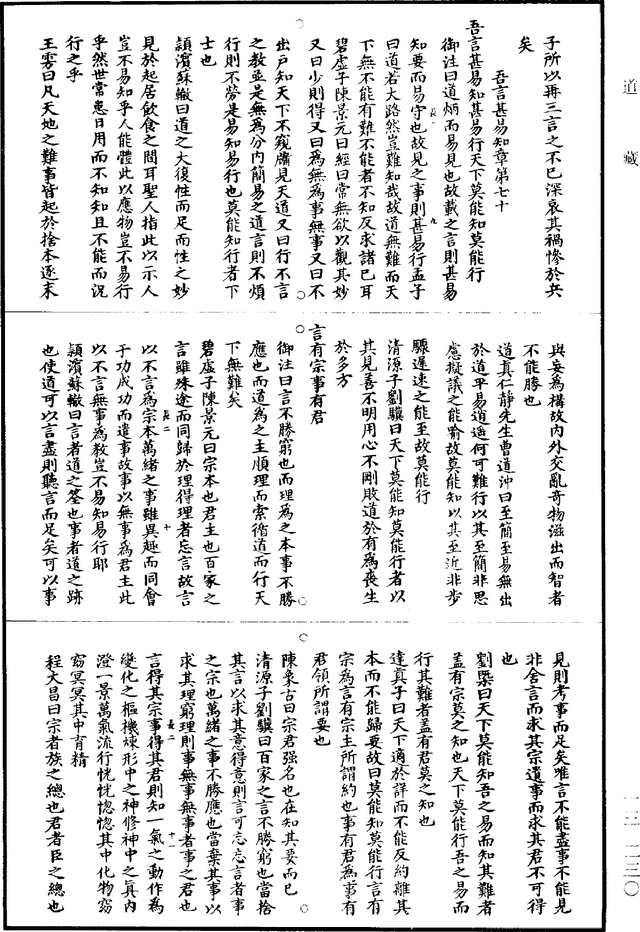 道藏
子所以再三言之不已深哀其禍慘於兵
矣
吾言甚易知章第七十
吾言甚易知甚易行天下莫能知莫能行
御注曰道炳而易見也故載之言則甚易
知要而易守也故見之事則甚易行孟子
曰道若大路然豈難知哉故道無難而天
下無不能有難不能者不知反求諸己耳
碧虛子陳景元曰經曰常無欲以觀其妙
又曰少則得又曰為無為事無事又曰不
出戶知天下不窺牖見天道又曰行不言
之教並是無為分內簡易之道言則不煩
行則不勞是易知易行也莫能知行者下
士也
頴濱蘇轍曰道之大復性而足而性之妙
見於起居飲食之間耳聖人指此以示人
豈不易知乎人能體此以應物豈不易行
乎然世常患日用而不知知且不能而況
行之乎
王雱曰凡天地之難事皆起於捨本逐末
與妄為構故內外交亂奇物滋出而智者
不能勝也
道真仁靜先生曹道沖曰至簡至易無出
於道平易逍遥何可難行以其至簡非思
慮擬議之能喻故莫能知以其至近非步
驟遲速之能至故莫能行
清源子劉驥曰天下莫能知莫能行者以
其見善不明用心不剛敗道於有為喪生
於多方
言有宗事有君
御注曰言不勝窮也而理為之本事不勝
應也而道為之主順理而索循道而行天
下無難矣
碧虛子陳景元曰宗本也君主也百家之
言雖殊途而同歸於理得理者忘言故言
以不言為宗本萬緒之事雖異趣而同會
于功成功而遣事故事以無事為君主此
以不言無事為教豈不易知易行耶
頴濱蘇轍曰言者道之筌也事者道之跡
也使道可以言盡則聽言而足矣可以事
見則考事而足矣唯言不能盡事不能見
非舍言而求其宗遺事而求其君不可得
也
劉槩曰天下莫能知吾之易而知其難者
蓋有宗莫之知也天下莫能行吾之易而
行其難者蓋有君莫之知也
達真子曰天下適於詳而不能反約離其
本而不能歸要故曰莫能知莫能行言有
宗為言有宗主所謂約也事有君為事有
君領所謂要也
陳象古曰宗君強名也在知其要而已
清源子劉驥曰百家之言不勝窮也當捨
其言以求其意得意則言可忘忘言者事
之宗也萬緒之事不勝應也當棄其事以
求其理窮理則事無事無事者事之君也
言得其宗事得其君則知一氣之動作為
變化之樞機煉形中之神修神中之真內
澄一景萬氣流行恍恍惚惚其中化物窈
窈冥冥其中育精
程大昌曰宗者族之總也君者臣之總也
一三—二三〇